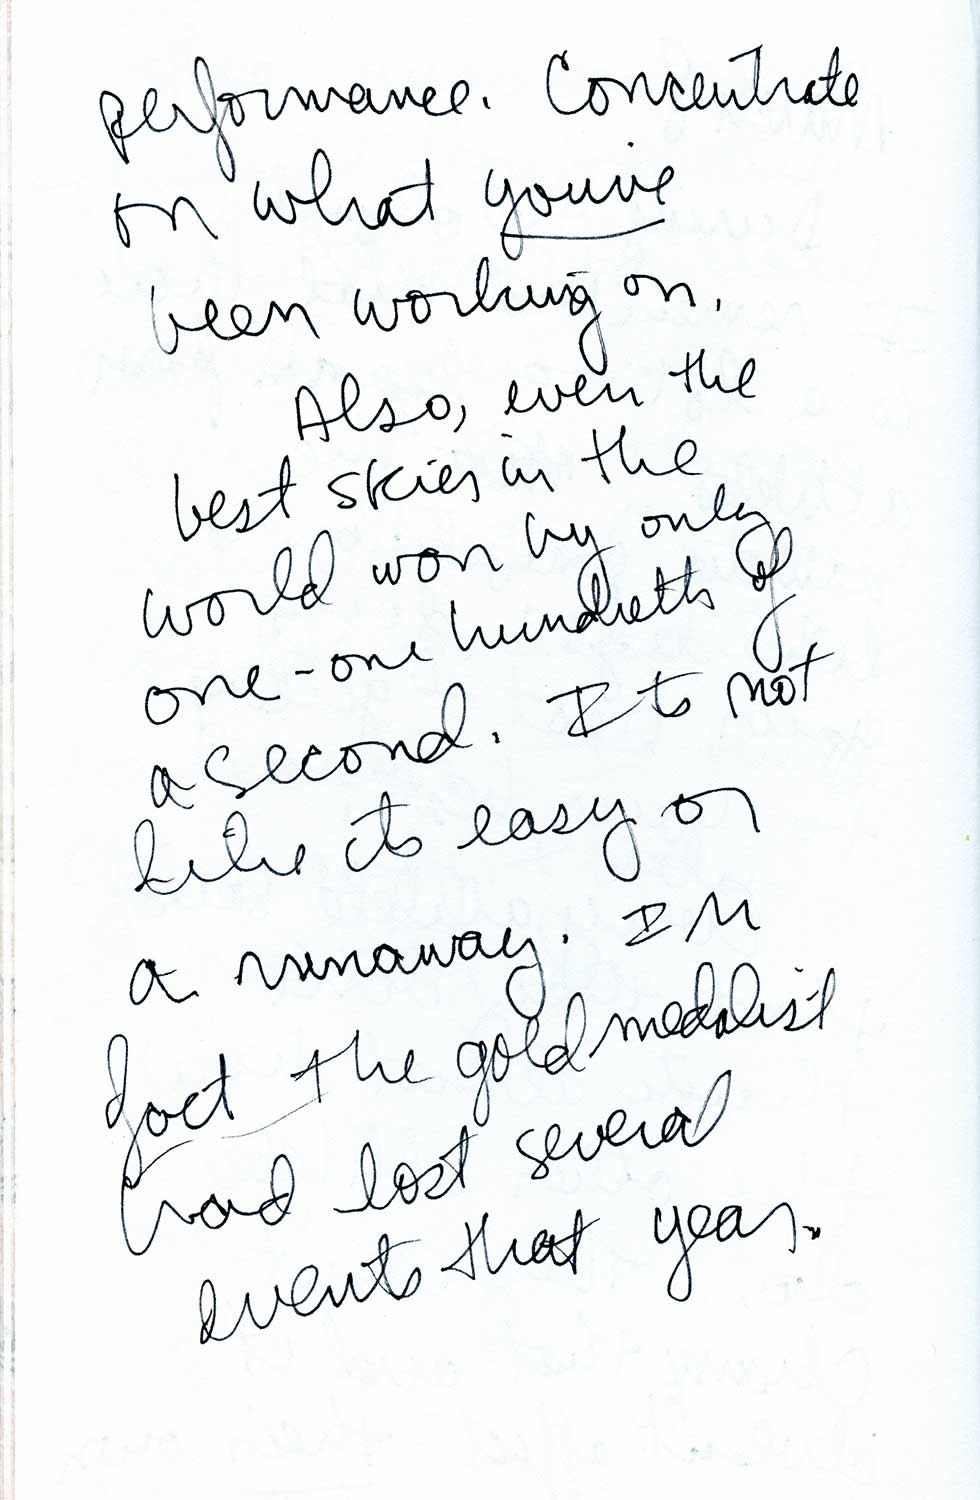 performance. Concentrate
on what you've
been working on.
Also, even the
best skier in the
world won by only
one-one hundredth of
a second. Its not
like its easy or
a runaway. In
fact the gold medalist
had lost several
events that year.